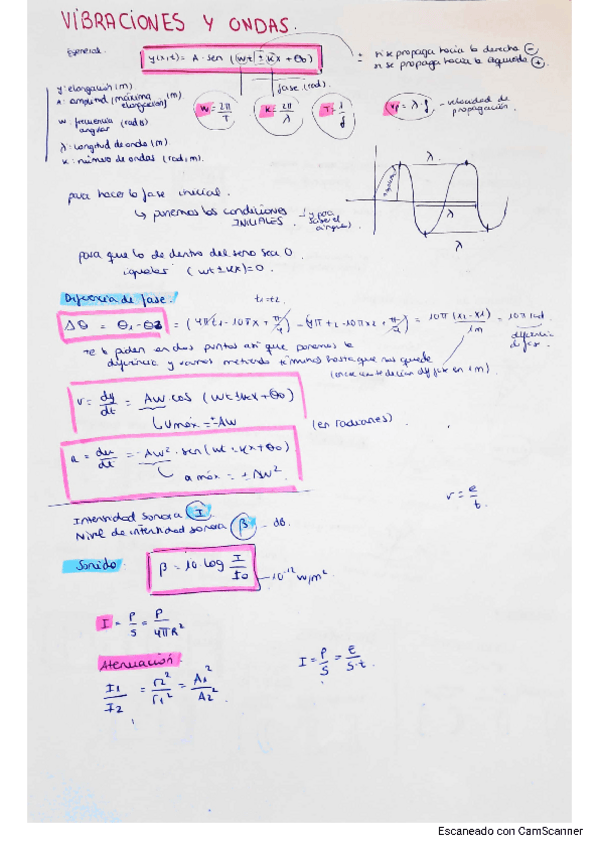 VIBRACIONES Y ONDAS.
General: y(x,t) = A · sen (wt ± kx + θo)
± = si se propaga hacia la derecha ⊖
si se propaga hacia la izquierda ⊕
fase (rad).
y: elongación (m)
A: amplitud (máxima elongación) (m)
w: frecuencia angular (rad/s)
λ: longitud de onda (m)
k: número de ondas (rad/m).
w = 2π/T
k = 2π/λ
T = 1/f
vp = λ · f - velocidad de propagación
λ
λ
λ
para hacer la fase inicial.
↳ ponemos las condiciones INICIALES.
para que lo de dentro del seno sea 0
igualar (wt ± kx) = 0.
Diferencia de fase.
t1 = t2.
Δθ = θ1 - θ2 = (4πt1 - 10πx1 + π/2) - (4πt2 - 10πx2 + π/2) = 10π (x2 - x1) = 10π rad.
1m
diferencia de fase.
Te lo piden en dos puntos así que ponemos la
diferencia y vamos metiendo términos hasta que nos quede
v = dy/dt = Aw cos (wt ± kx + θo)
↳ vmáx = ± Aw
(en radianes).
a = dv/dt = - Aw² · sen (wt ± kx + θo)
a máx = ± Aw².
v = e/t.
Intensidad sonora (I)
Nivel de intensidad sonora (β) - dB.
Sonido.
β = 10 log I/Io
10⁻¹² W/m²
I = P/S = P/4πR²
I = P/S = E/S·t.
Atenuación.
I1/I2 = r2²/r1² = A1²/A2²
Escaneado con CamScanner